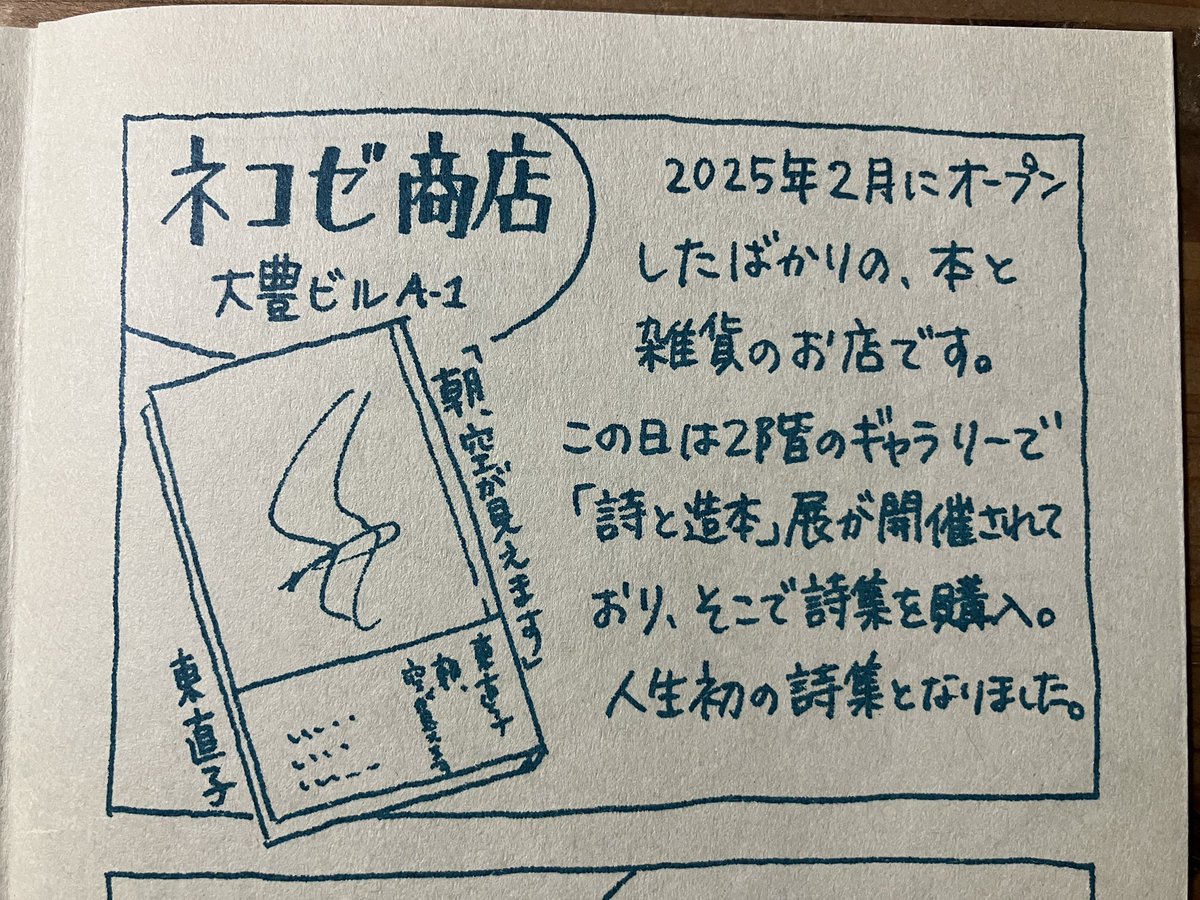 ネコゼ商店
大豊ビル A-1
2025年2月にオープン
したばかりの、本と
雑貨のお店です。
この日は2階のギャラリーで
「詩と造本」展が開催されて
おり、そこで詩集を購入。
人生初の詩集となりました。
「朝、空が見えます」
東直子
東直子
朝、
空が見えます